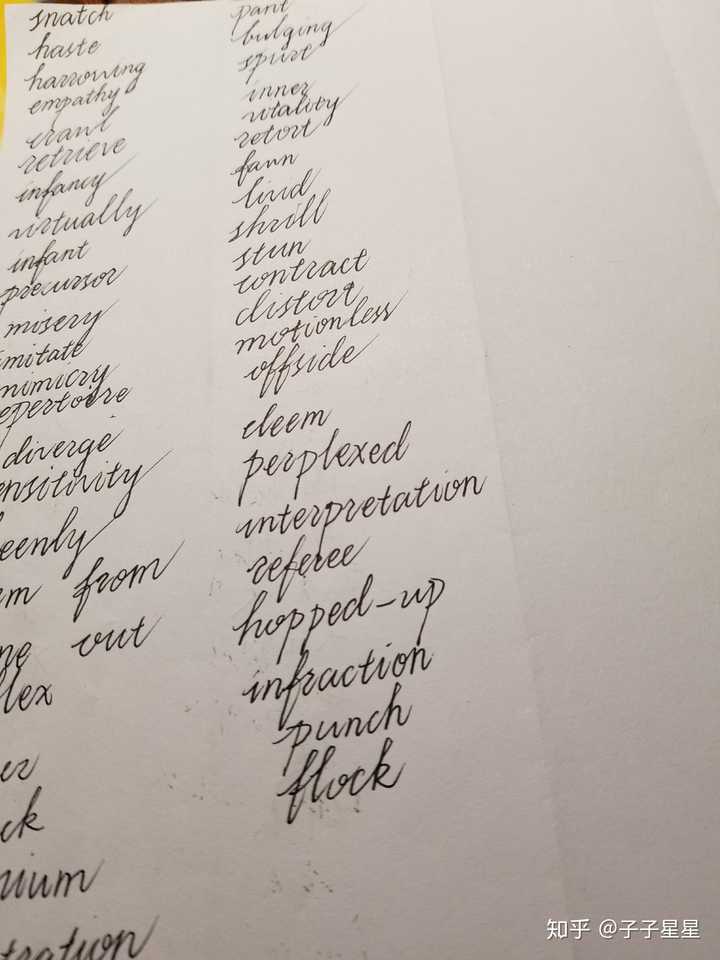 snatch
haste
harrowing
empathy
crawl
retrieve
infancy
virtually
infant
precursor
misery
imitate
mimicry
repertoire
diverge
ensitivity
eenly
em from
ne out
flex
er
ck
nium
tration
pant
bulging
inner
vitality
retort
fawn
livid
shrill
stun
contract
distort
motionless
offside
deem
perplexed
interpretation
referee
hopped-up
infraction
punch
flock
知乎 @子子星星